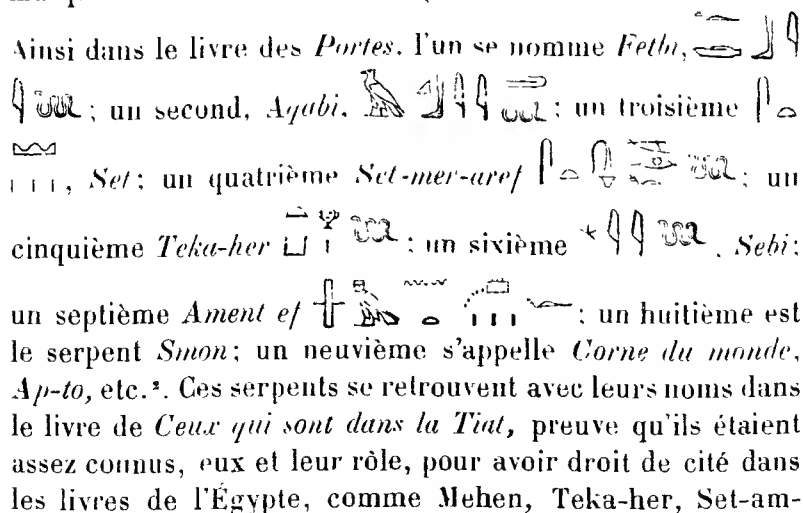 Ainsi dans le livre des Portes, l'un se nomme
; un second, Aqabi, ; un troisième
, Set; un quatrième Set-mer-aref ; un
cinquième Teka-her ; un sixième , Sebi;
un septième Ament ef ; un huitième est
le serpent Smon; un neuvième s'appelle Corne du monde,
Ap-to, etc.². Ces serpents se retrouvent avec leurs noms dans
le livre de Ceux qui sont dans la Tiat, preuve qu'ils étaient
assez connus, eux et leur rôle, pour avoir droit de cité dans
les livres de l'Égypte, comme Mehen, Teka-her, Set-am-